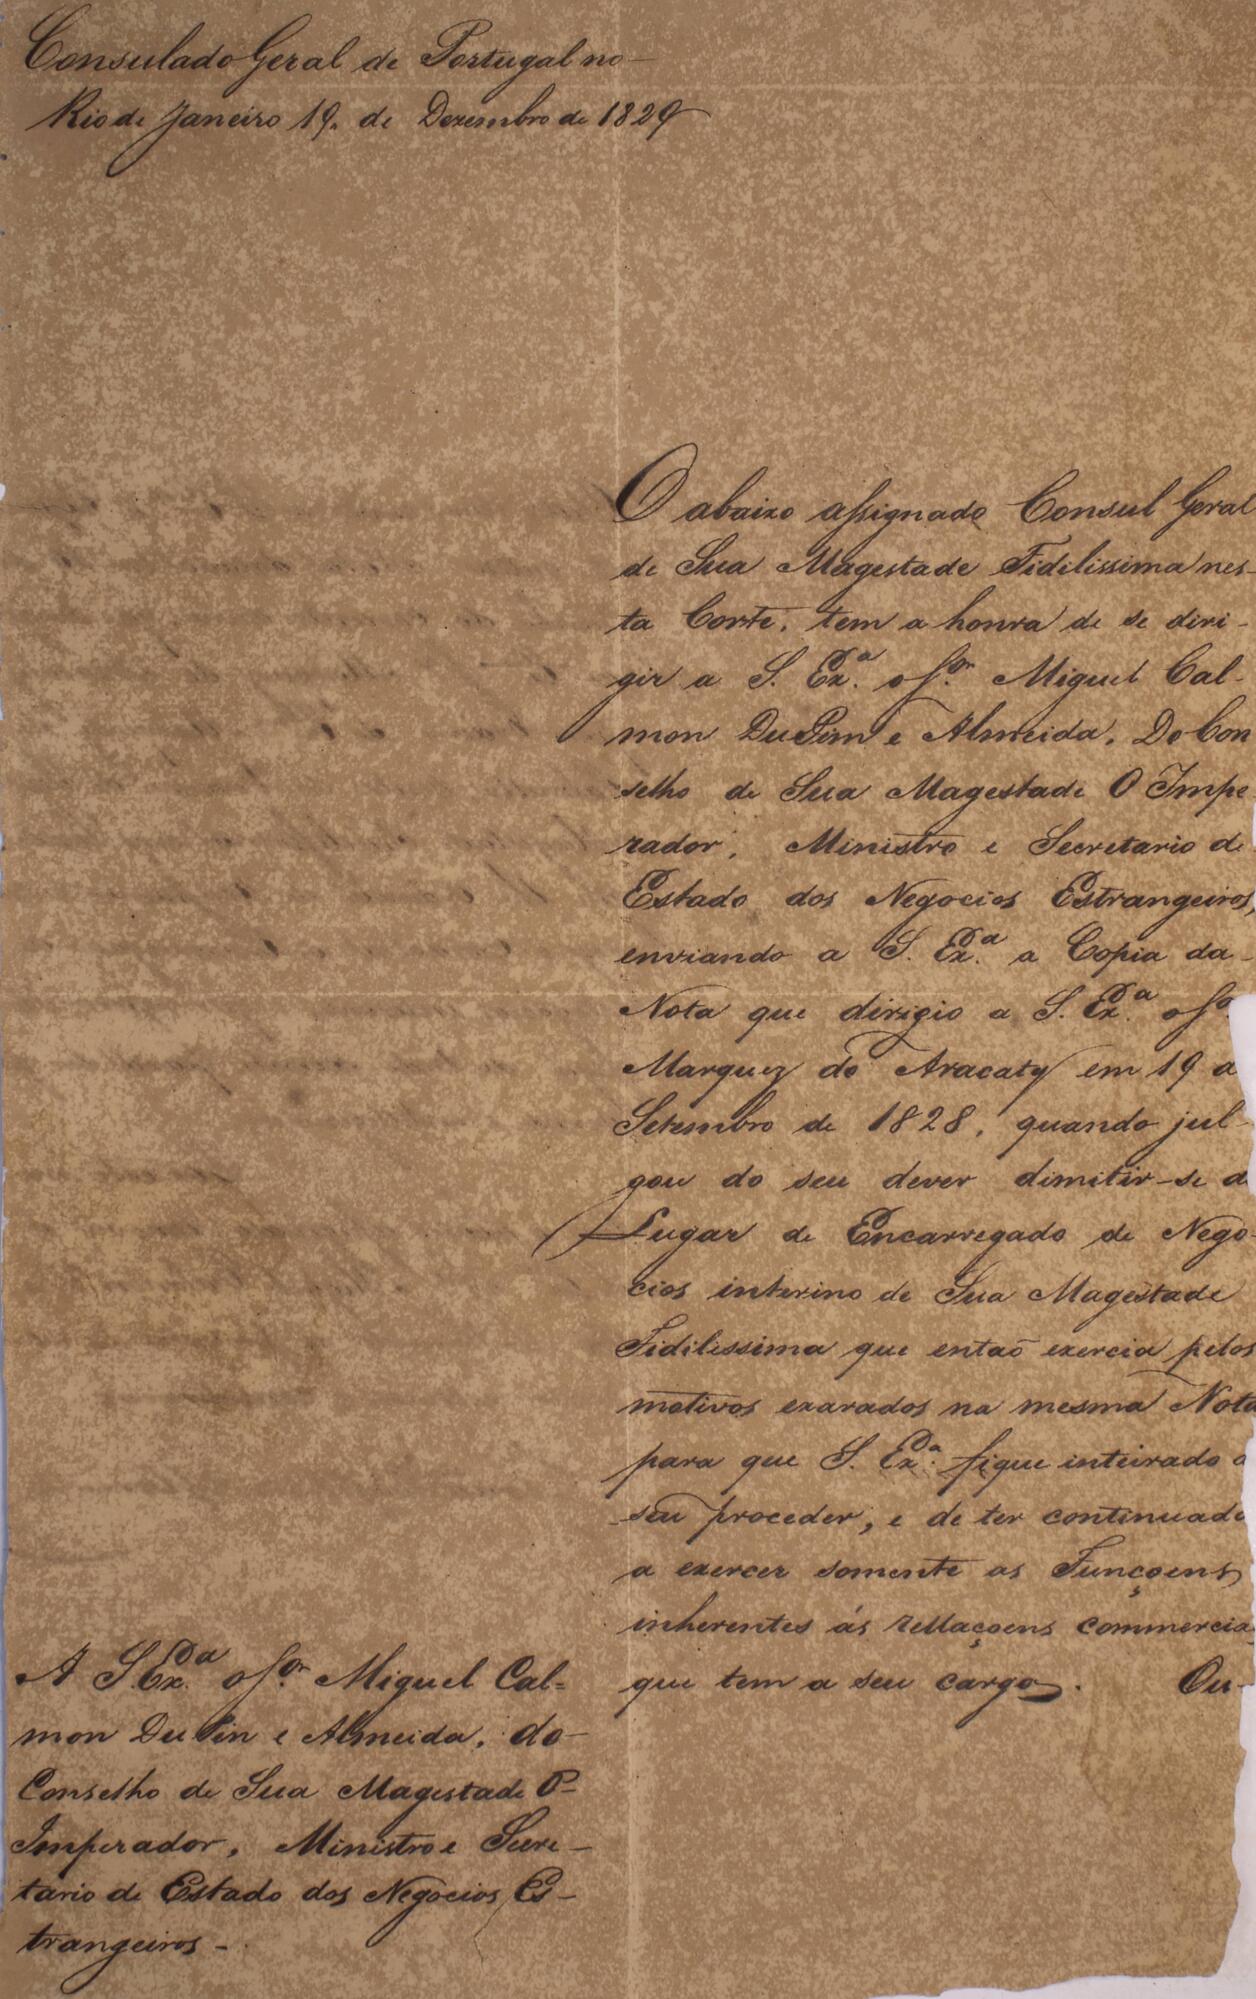 Consulado Geral de Portugal no
Rio de Janeiro 19. de Dezembro de 1829
O abaixo assignado Consul Geral
de Sua Magestade Fidelissima nes-
ta Corte, tem a honra de se diri-
gir a S. Ex.ª o Sr. Miguel Cal-
mon DuPim e Almeida, Do Con
selho de Sua Magestade O Impe
rador, Ministro e Secretario de
Estado dos Negocios Estrangeiros,
enviando a S. Ex.ª a Copia da
Nota que dirigio a S. Ex.ª o Sr.
Marquez do Aracaty em 19 d
Setembro de 1828, quando jul-
gou do seu dever dimitir-se d
Lugar de Encarregado de Nego-
cios interino de Sua Magestade
Fidilissima que entaõ exercia pelos
motivos exarados na mesma Nota
para que S. Ex.ª fique inteirado d
seu proceder, e de ter continuado
a exercer somente as Funçoens
inherentes ás rellaçoens commercia
que tem a seu cargo. Ou-
A S. Ex.ª o Sr. Miguel Cal-
mon DuPin e Almeida, do
Conselho de Sua Magestade O
Imperador, Ministro e Secre-
tario de Estado dos Negocios Es-
trangeiros-